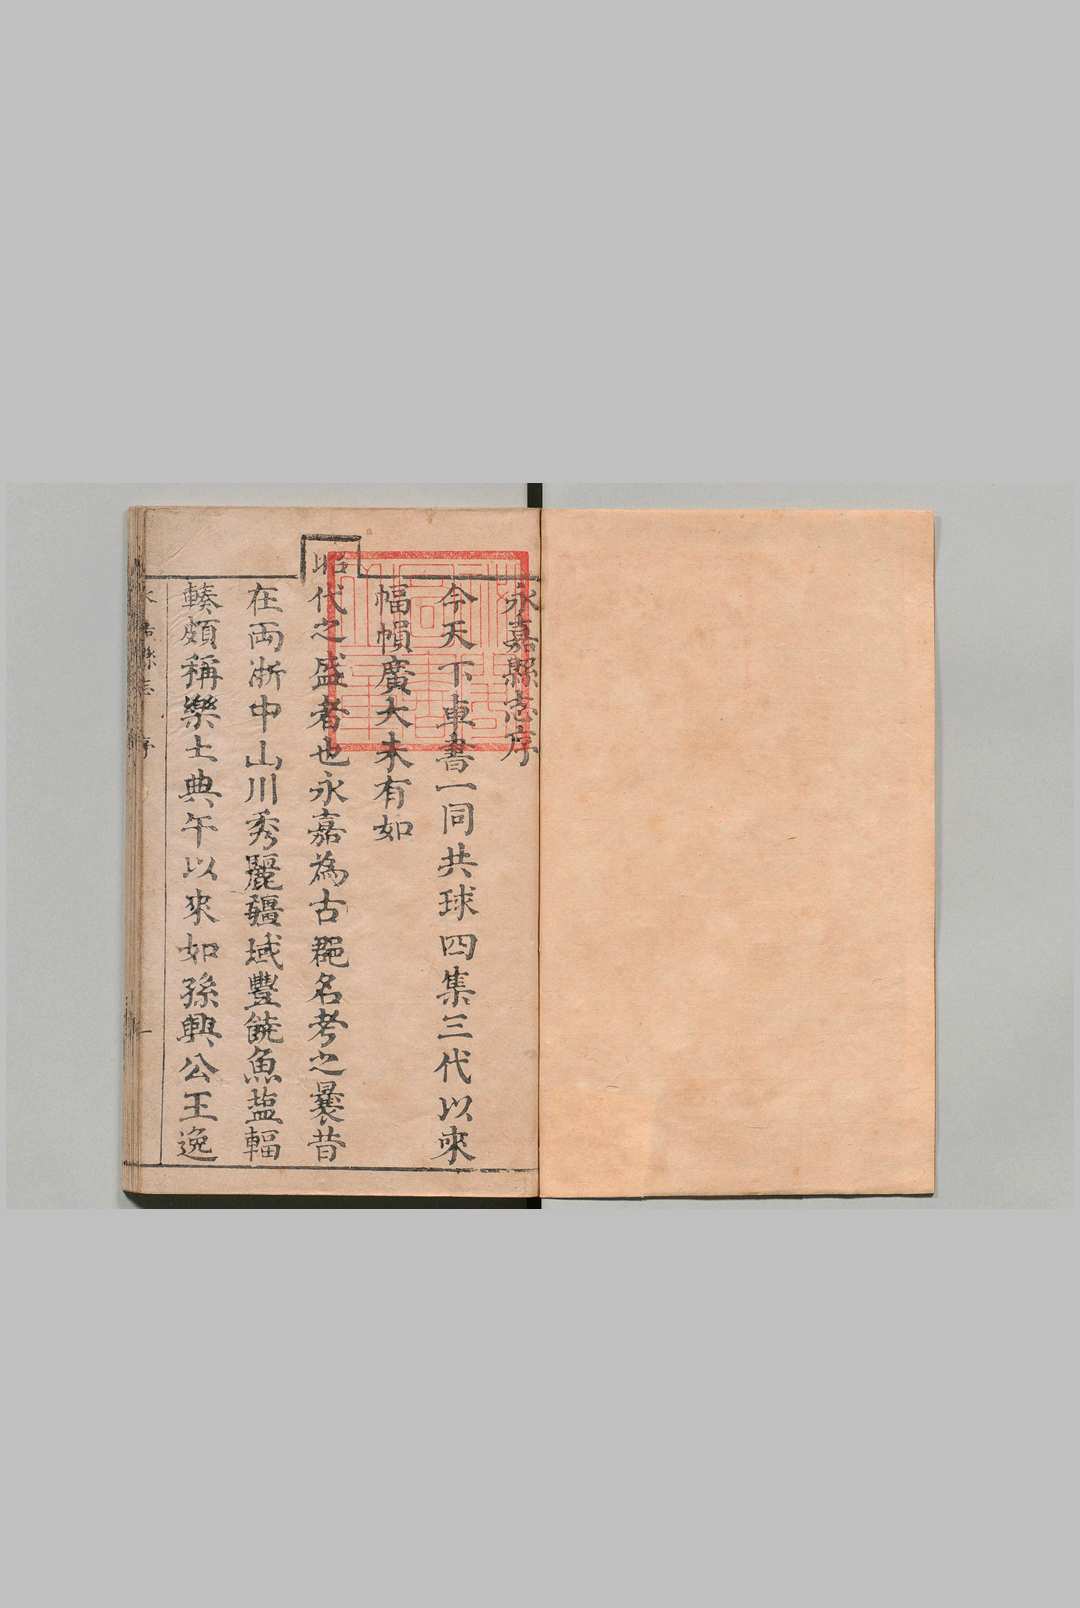 永嘉縣志序
今天下車書一同共球四集三代以來
幅幀廣大未有如
昭代之盛者也永嘉為古郡名考之曩昔
在両浙中山川秀麗疆域豐饒魚塩輻
輳頗稱樂土典午以來如孫興公王逸
永嘉縣志 序 一